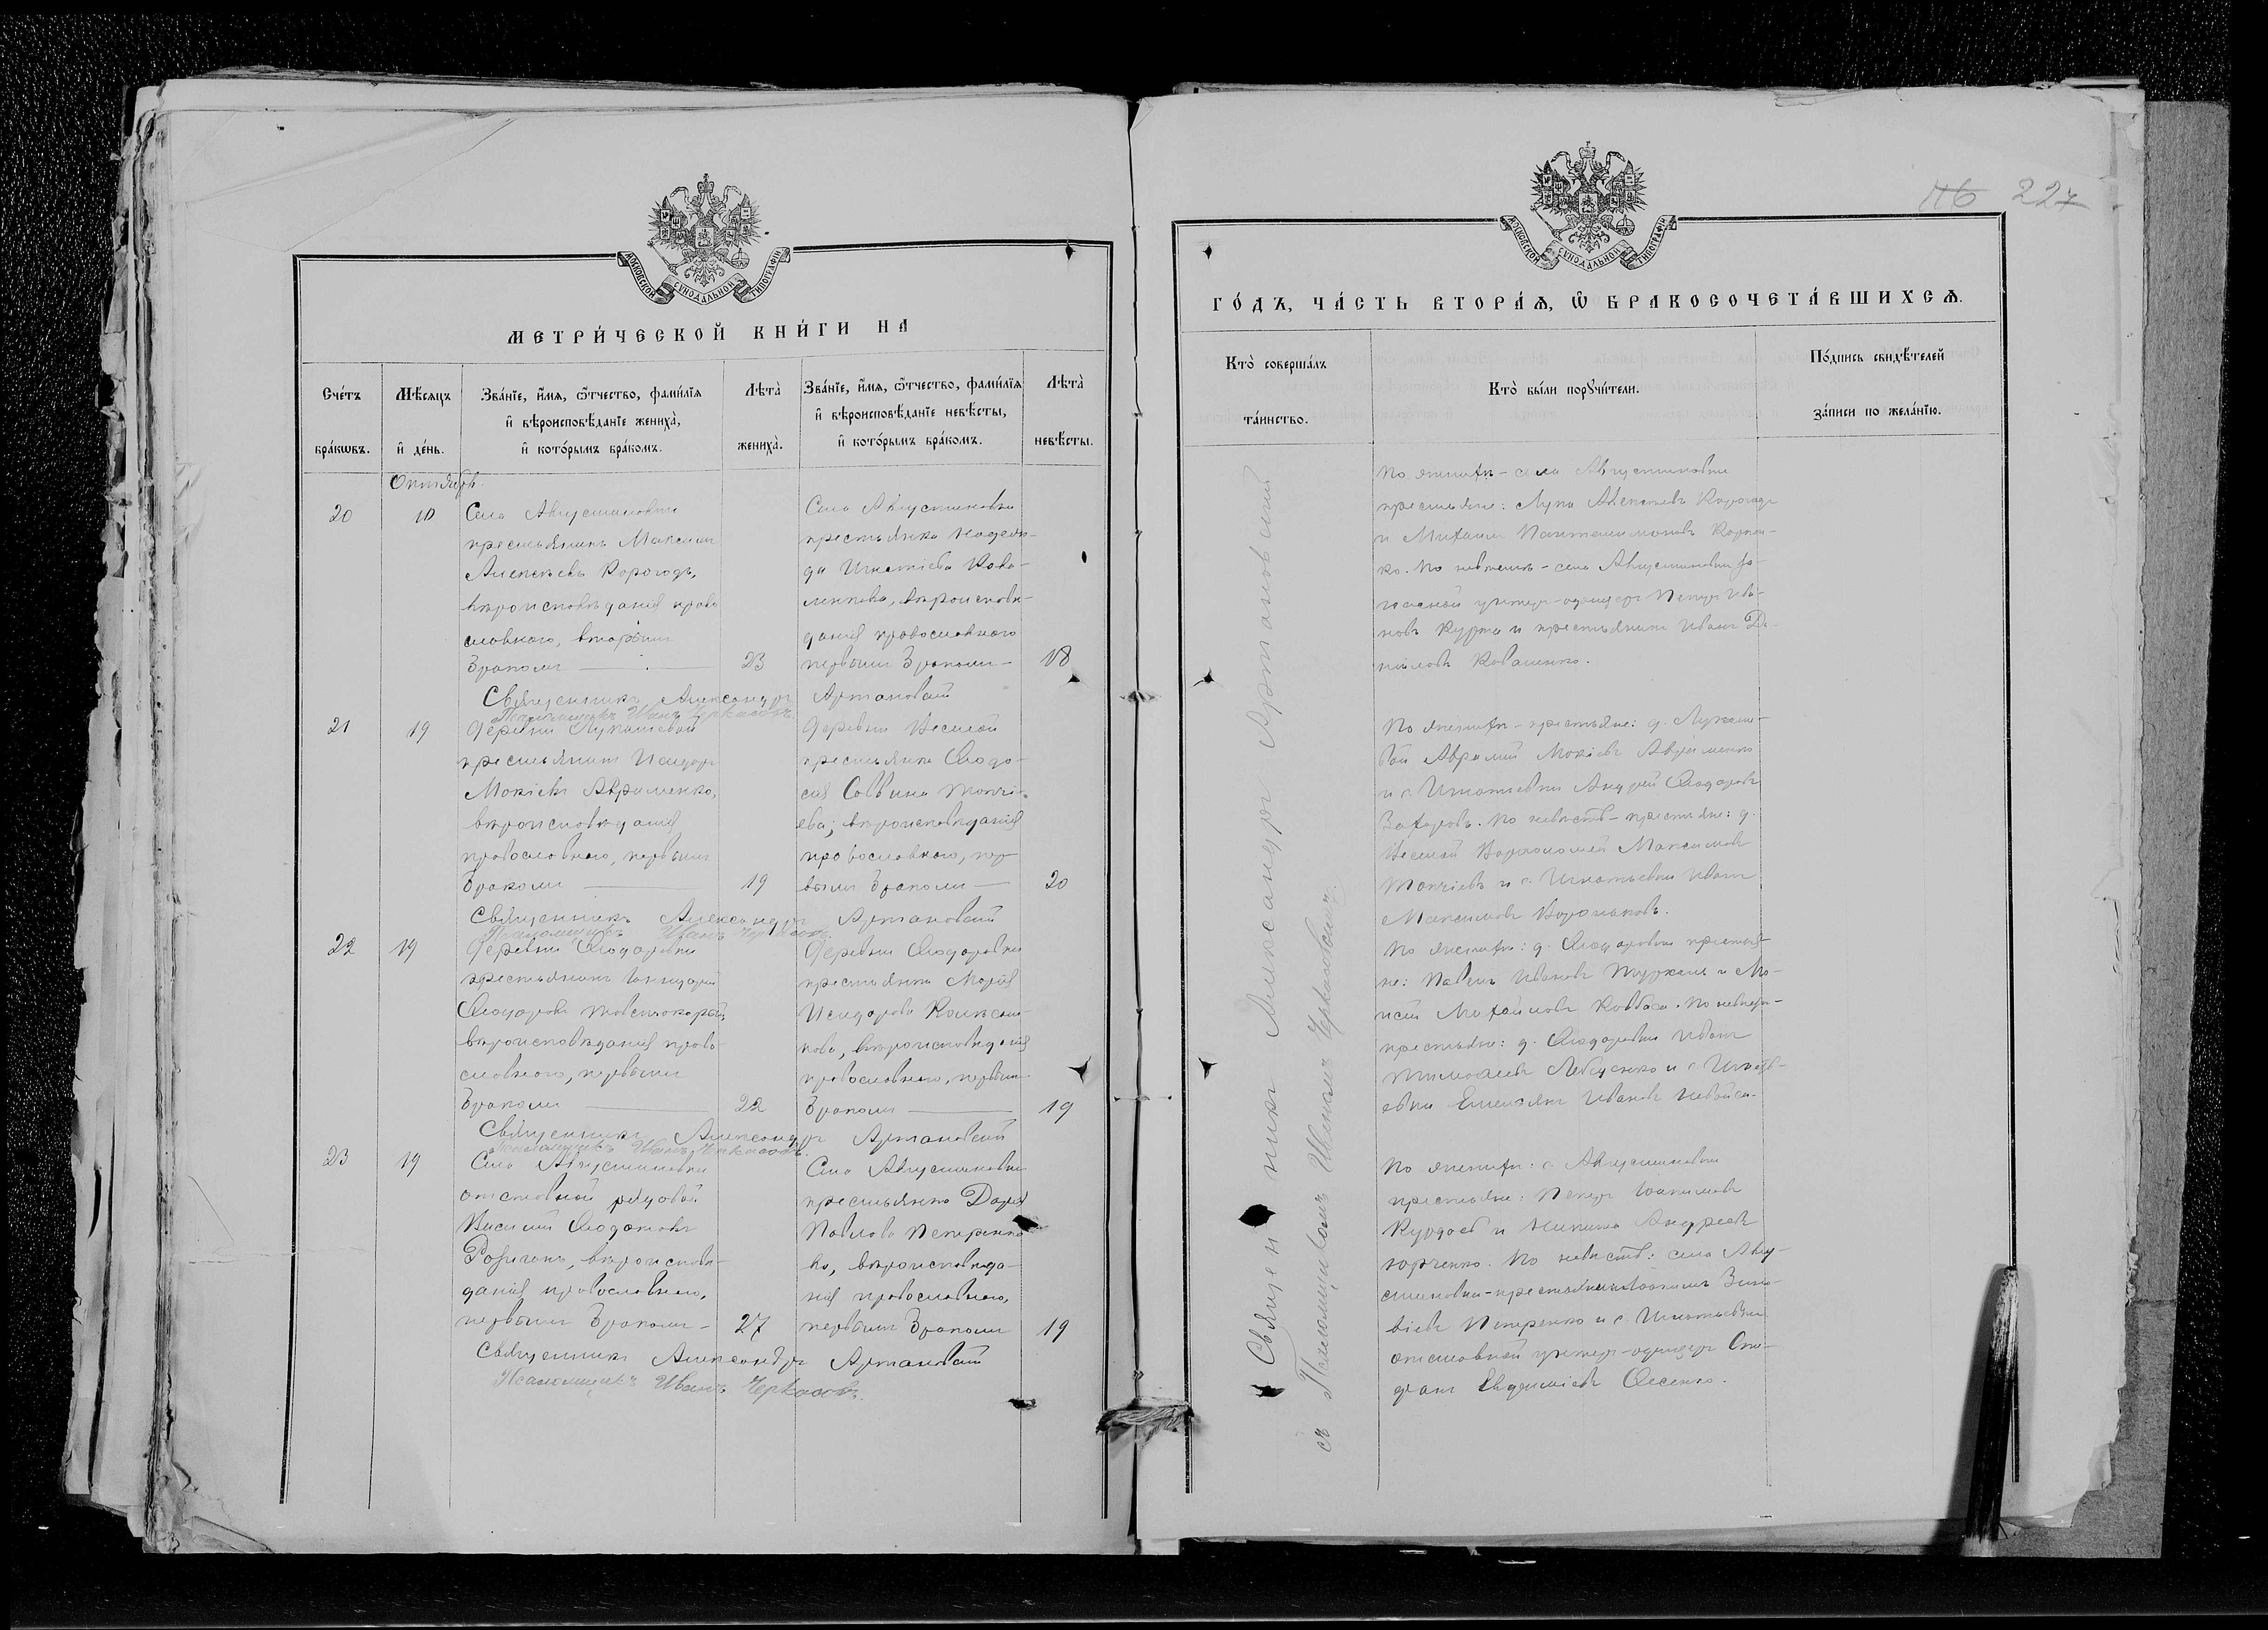 МОСКОВСКОЙ СѴНОДАЛЬНОЙ ТИПОГРАФІИ
МЕТРИ́ЧЕСКОЙ КНИ́ГИ НА
Сче́тъ бра́кѡвъ.
Мѣ́сяцъ и҆ де́нь.
Зва́нїе, и҆́мя, ѻ҆́тчество, фами́лїя
и҆ вѣроисповѣ́данїе жениха̀,
и҆ кото́рымъ бра́комъ.
Лѣта̀ жениха̀.
Зва́нїе, и҆́мя, ѻ҆́тчество, фами́лїя
и҆ вѣроисповѣ́данїе невѣ́сты,
и҆ кото́рымъ бра́комъ.
Лѣта̀ невѣ́сты.
Октябрь.
20
10
Села Августиновки
крестьянинъ Максимъ
Алексѣевъ Корогодъ,
вѣроисповѣданія право
славнаго, вторымъ
бракомъ
23
Села Августиновки
крестьянка Надеж-
да Игнатіева Кова-
ленкова, вѣроисповѣ-
данія православнаго
первымъ бракомъ
18
Священникъ Александръ Артановскій
Псаломщикъ Иванъ Черкасовъ
21
19
Деревни Лукашевой
крестьянинъ Исидоръ
Мокіевъ Авраменко,
вѣроисповѣданія
православнаго, первымъ
бракомъ
19
Деревни Веселой
крестьянка Ѳеодо-
сія Саввина Топчі-
ева, вѣроисповѣданія
православнаго, пер
вымъ бракомъ
20
Священникъ Александръ Артановскій
Псаломщикъ Иванъ Черкасовъ
22
19
Деревни Ѳеодоровки
крестьянинъ
Ѳеодоровъ Товстокорый,
вѣроисповѣданія право-
славнаго, первымъ
бракомъ
22
Деревни Ѳеодоровки
крестьянка Марія
Исидорова Колѣсни-
кова, вѣроисповѣданія
православнаго, первымъ
бракомъ
19
Священникъ Александръ Артановскій
Псаломщикъ Иванъ Черкасовъ
23
19
Села Августиновки
отставной рядовой
Василій
вѣроисповѣ-
данія православнаго,
первымъ бракомъ
27
Села Августиновки
крестьянка Дарія
Павлова Петренко
ва, вѣроисповѣда-
нія православнаго,
первымъ бракомъ
19
Священникъ Александръ Артановскій
Псаломщикъ Иванъ Черкасовъ.
116 227
МОСКОВСКОЙ СѴНОДАЛЬНОЙ ТИПОГРАФІИ
ГО́ДЪ, ЧА́СТЬ ВТОРА́Я, Ѡ҆ БРАКОСОЧЕТА́ВШИХСЯ.
Кто̀ соверша́лъ та́инство.
Кто̀ бы́ли порꙋчи́тели.
По́дпись свидѣ́телей
за́писи по жела́нїю.
Священникъ Александръ Артановскій
съ Псаломщикомъ Иваномъ Черкасовымъ.
По женихѣ – села Августиновки
крестьяне: Лука Алексѣевъ Корогодъ
и Михаилъ Пантелимоновъ
ко. По невѣстѣ – села Августиновки
унтеръ-офицеръ Петръ Ива-
новъ Курта и крестьянинъ Иванъ Да-
ниловъ Коваленко.
По женихѣ – крестьяне: д. Лукаше-
вой Аврамій Мокіевъ Авраменко
и с. Игнатьевки Андрей Ѳеодоровъ
Захаровъ. По невѣстѣ – крестьяне: д.
Веселой Варѳоломей Максимовъ
Топчіевъ и с. Игнатьевки Иванъ
Максимовъ Вороновъ.
По женихѣ: д. Ѳеодоровки крестья-
не: Павелъ Ивановъ и Мо-
исей Михайловъ Ковбаса. По невѣстѣ –
крестьяне: д. Ѳеодоровки Иванъ
Тимоѳеевъ и с. Игнать-
евки Емельянъ Ивановъ
По женихѣ: с. Августиновки
крестьяне: Петръ
и Никита Андреевъ
Юрченко. По невѣстѣ: села Авгу-
стиновки – крестьянинъ Зино-
віевъ Петренко и с. Игнатьевки
отставной унтеръ-офицеръ Сте-
фанъ Евдокимовъ